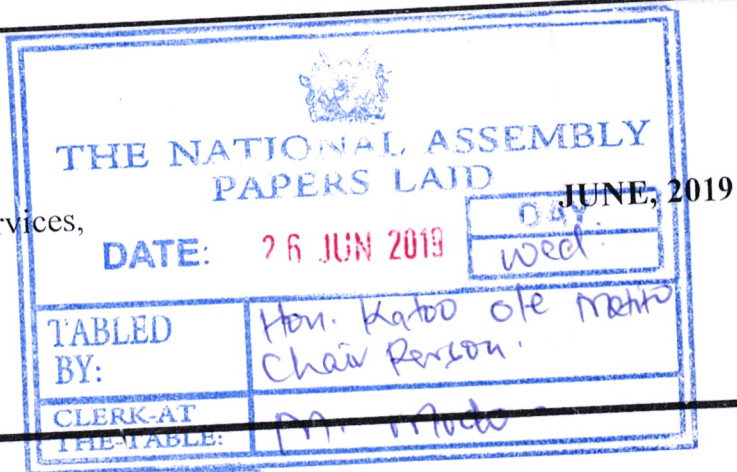 THE NATIONAL ASSEMBLY
PAPERS LAID
JUNE, 2019
rvices,
DAY.
DATE: 26 JUN 2019 Wed.
TABLED BY: Hon. Katoo ole Metito
Chair Person.
CLERK-AT
THE-TABLE: